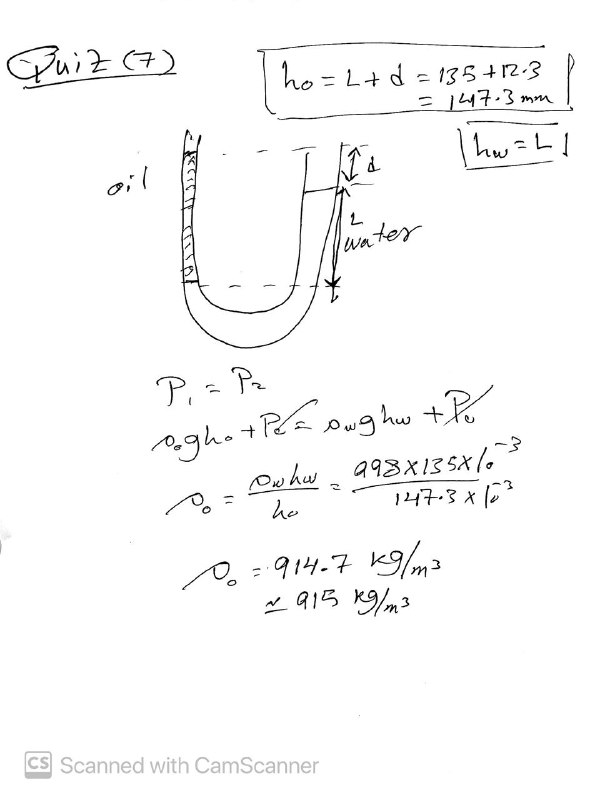 Quiz (7)
ho = L + d = 135 + 12.3
= 147.3 mm
hw = L
oil
d
L
water
P₁ = P₂
ρₒgho + Po = ρwghw + Po
ρₒ = ρwhw / ho = 998 x 135 x 10⁻³ / 147.3 x 10⁻³
ρₒ = 914.7 kg/m³
≃ 915 kg/m³
CS Scanned with CamScanner